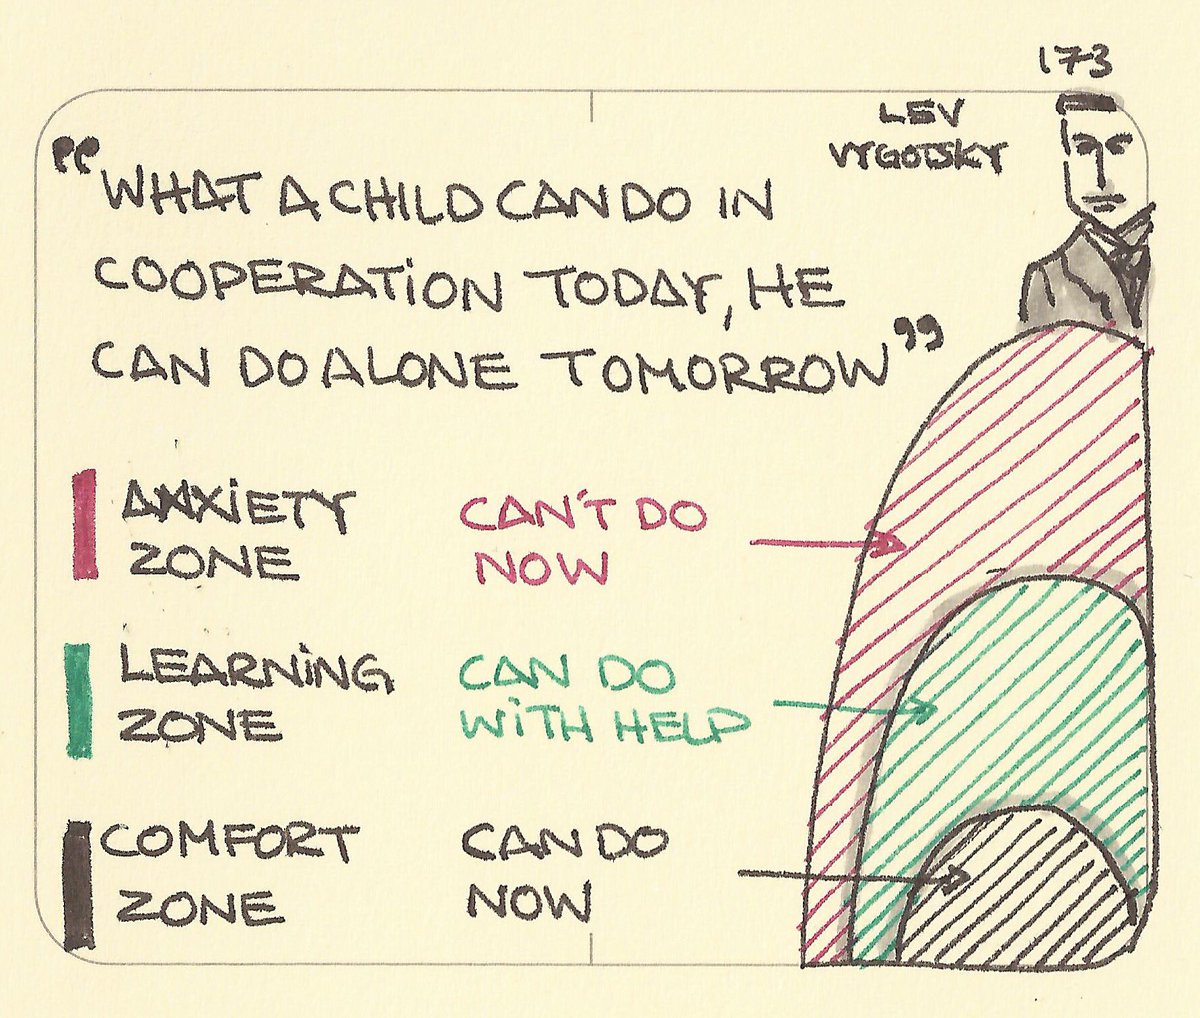 173
LEV
VYGOTSKY
"WHAT A CHILD CAN DO IN
COOPERATION TODAY, HE
CAN DO ALONE TOMORROW"
ANXIETY
ZONE
CAN'T DO
NOW
LEARNING
ZONE
CAN DO
WITH HELP
COMFORT
ZONE
CAN DO
NOW